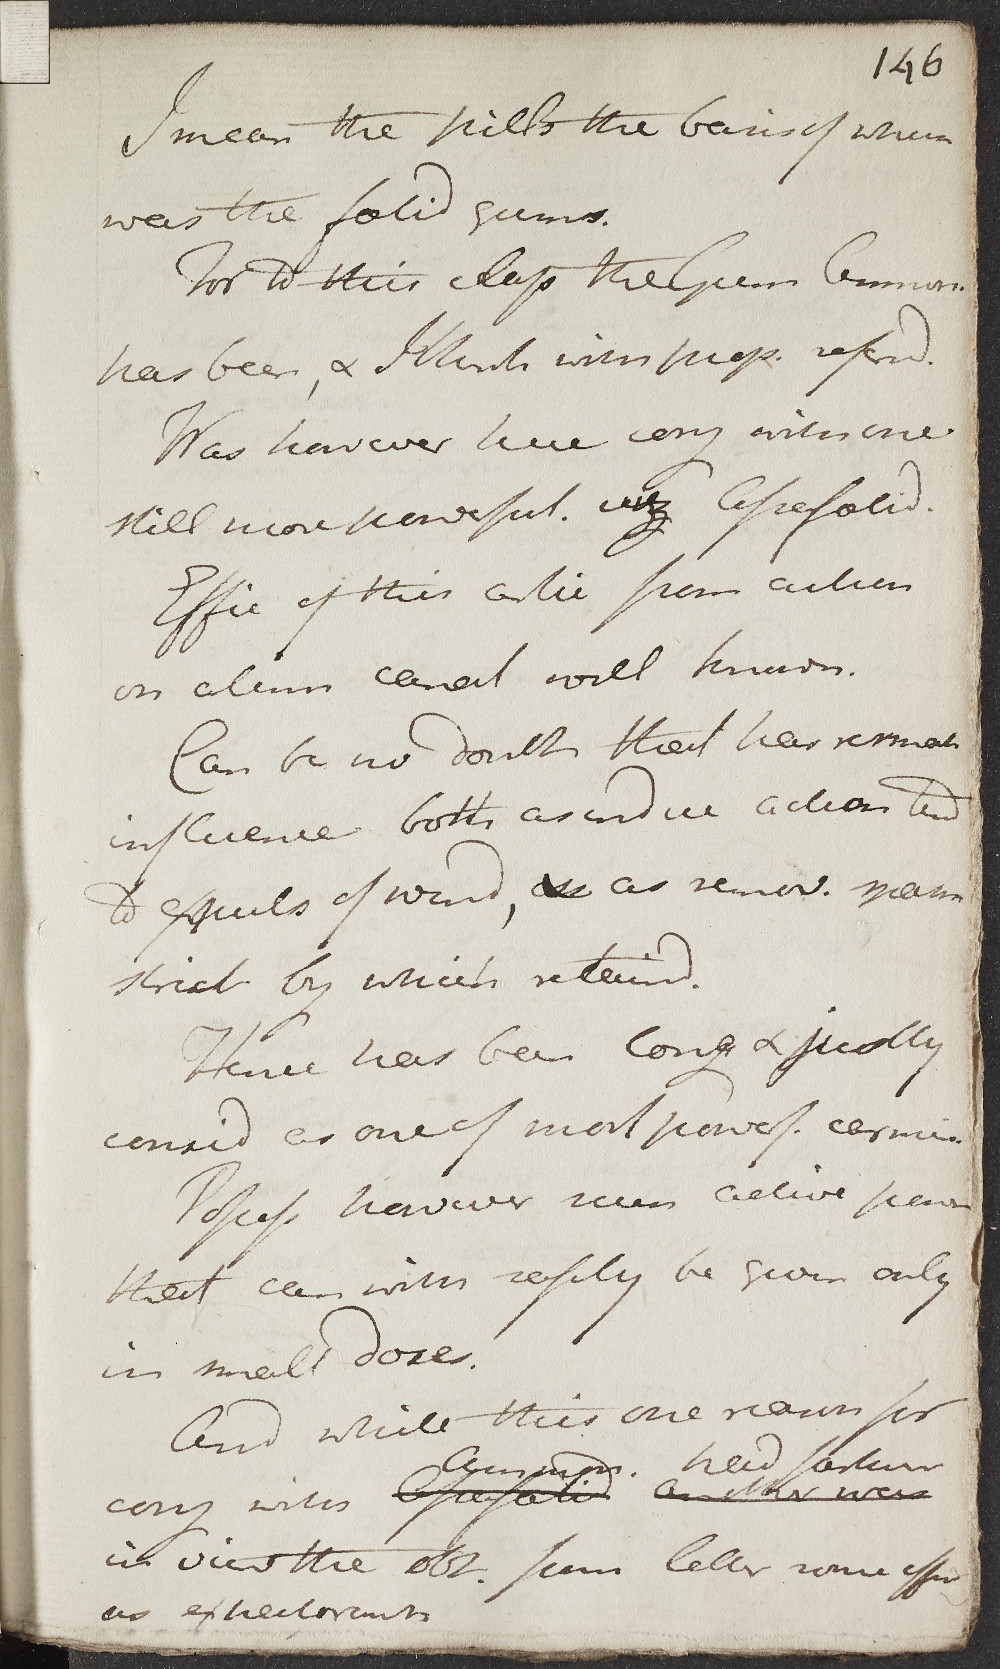 146
I mean the pills the basis of when
was the fœtid gums.
For to this class the Gum Ammon.
has been, & I think with prop. referd.
Was however here conj with one
still more powerful. viz Assafœtid.
Effic of this artic from action
on alim canal well known.
Can be no doubt that has remark
influence both as induc action tend
to expuls of wind, as remov. spasm
strict by which retaind.
Hence has been long & justly
considd as one of most powerf. carmin.
Possess however such active power
that can with safety be given only
in small doses.
And while this one reason for
Ammon. had farther
conj with Assafœtid another was
in view the obt. from latter some effec
as expectorants